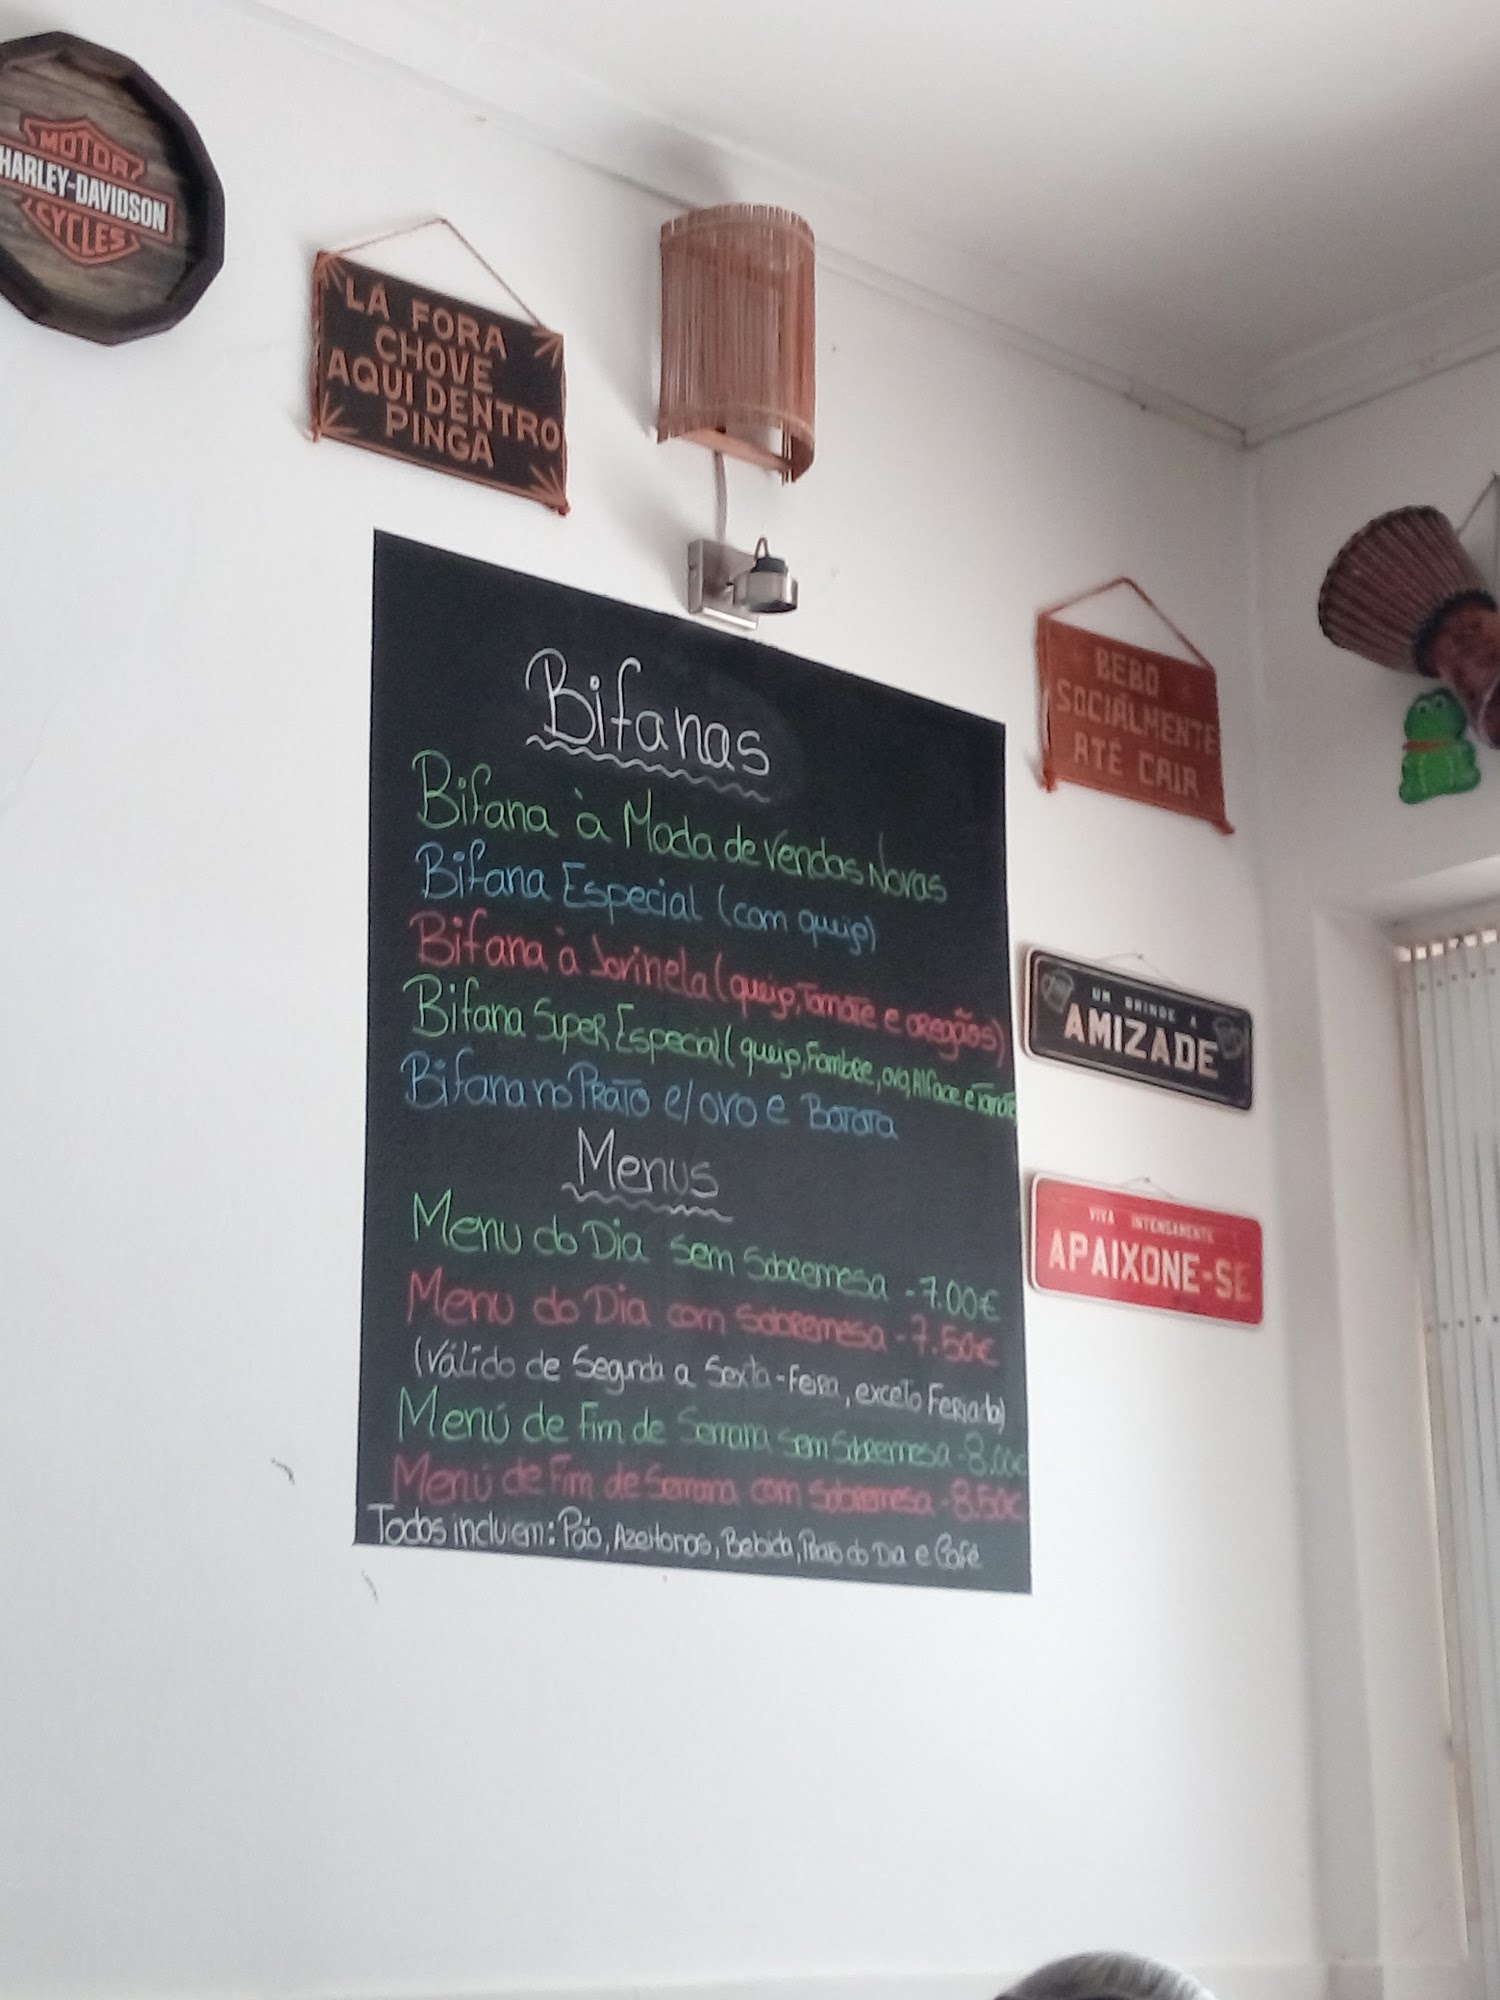 MOTOR
HARLEY-DAVIDSON
CYCLES
LÁ FORA
CHOVE
AQUI DENTRO
PINGA
Bifanas
Bifana à Moda de Vendas Novas
Bifana Especial (com queijo)
Bifana à Jorinela (queijo, Tomate e oregãos)
Bifana Super Especial (queijo, Fiambre, ovo, Alface e Tomate
Bifana no Prato c/ovo e Batata
Menus
Menu do Dia sem sobremesa - 7.00€
Menu do Dia com sobremesa - 7.50€
(Válido de Segunda a Sexta-Feira, exceto Feriado)
Menú de Fim de Semana sem sobremesa - 8.00€
Menú de Fim de Semana com sobremesa - 8.50€
Todos incluiem: Pão, Azeitonas, Bebida, Prato do Dia e Café
BEBO
SOCIALMENTE
ATÉ CAIR
UM BRINDE À
AMIZADE
VIVA INTENSAMENTE
APAIXONE-SE